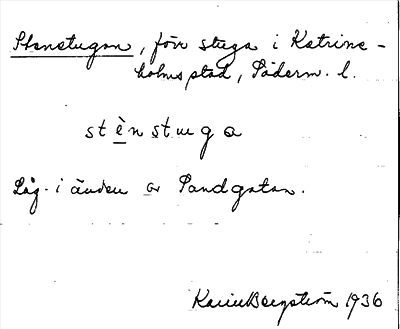 Stenstugan, förr stuga i Katrine-
holms stad, Söderm. l.
stènstuga
Låg i änden av Sandgatan.
Karin Bergström 1936